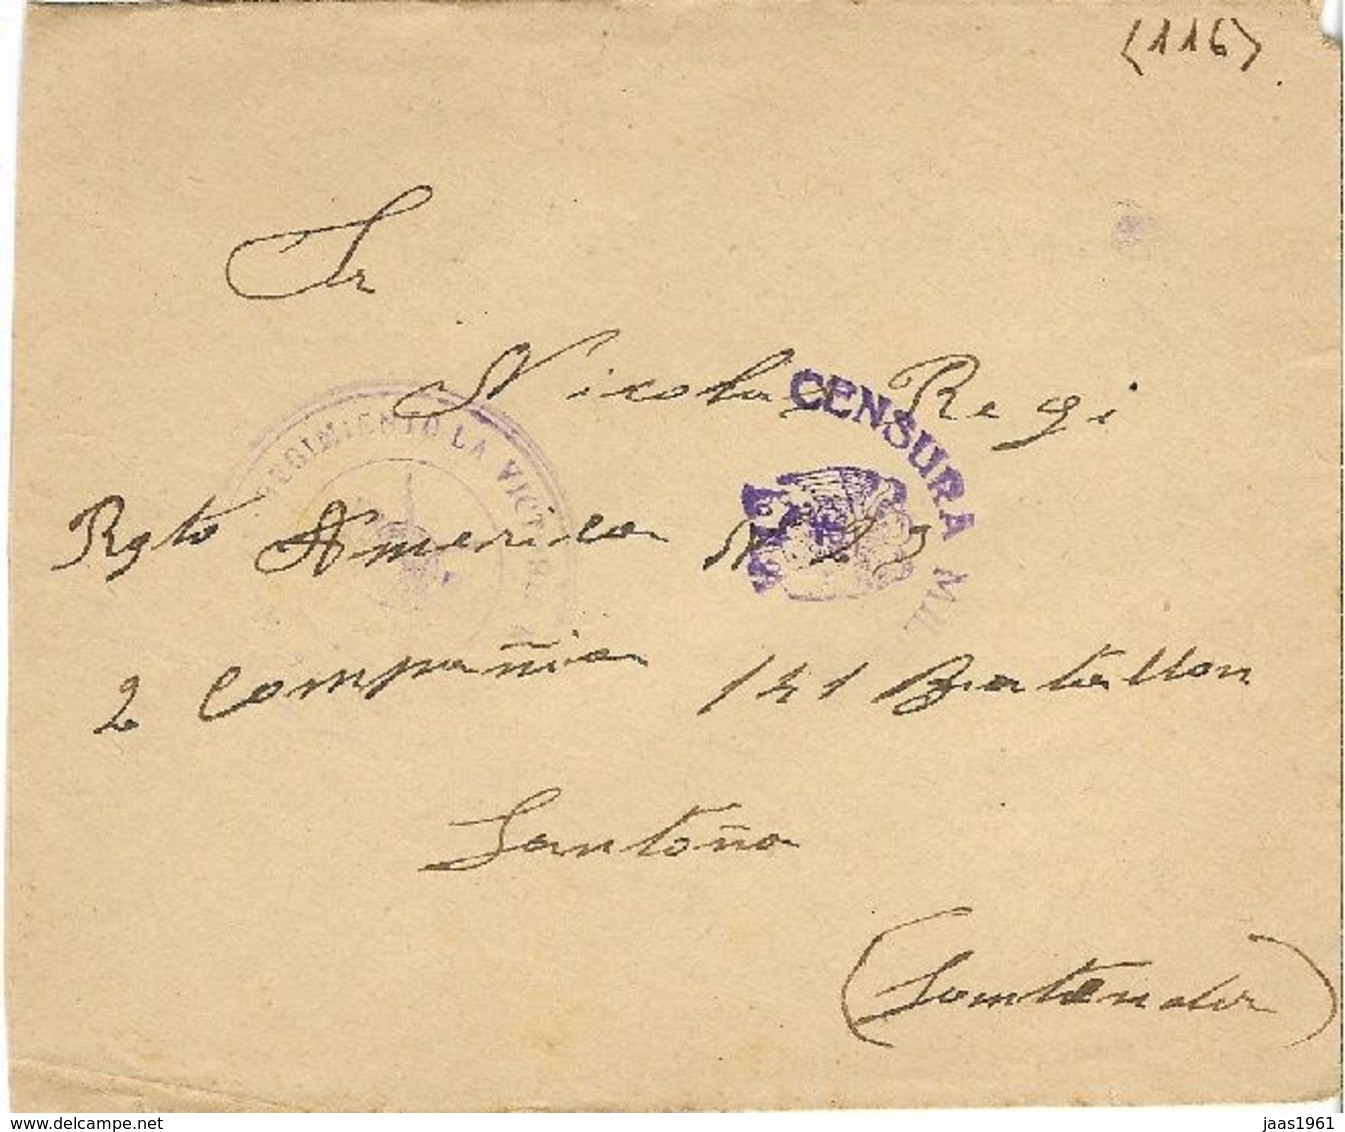 (116)
Sr
Nicolas Regi
REGIMIENTO LA VICTORIA
CENSURA MIL
Rgto America Nº 23
2 Compañia 141 Batallon
Santoña
(Santander)
jaas1961